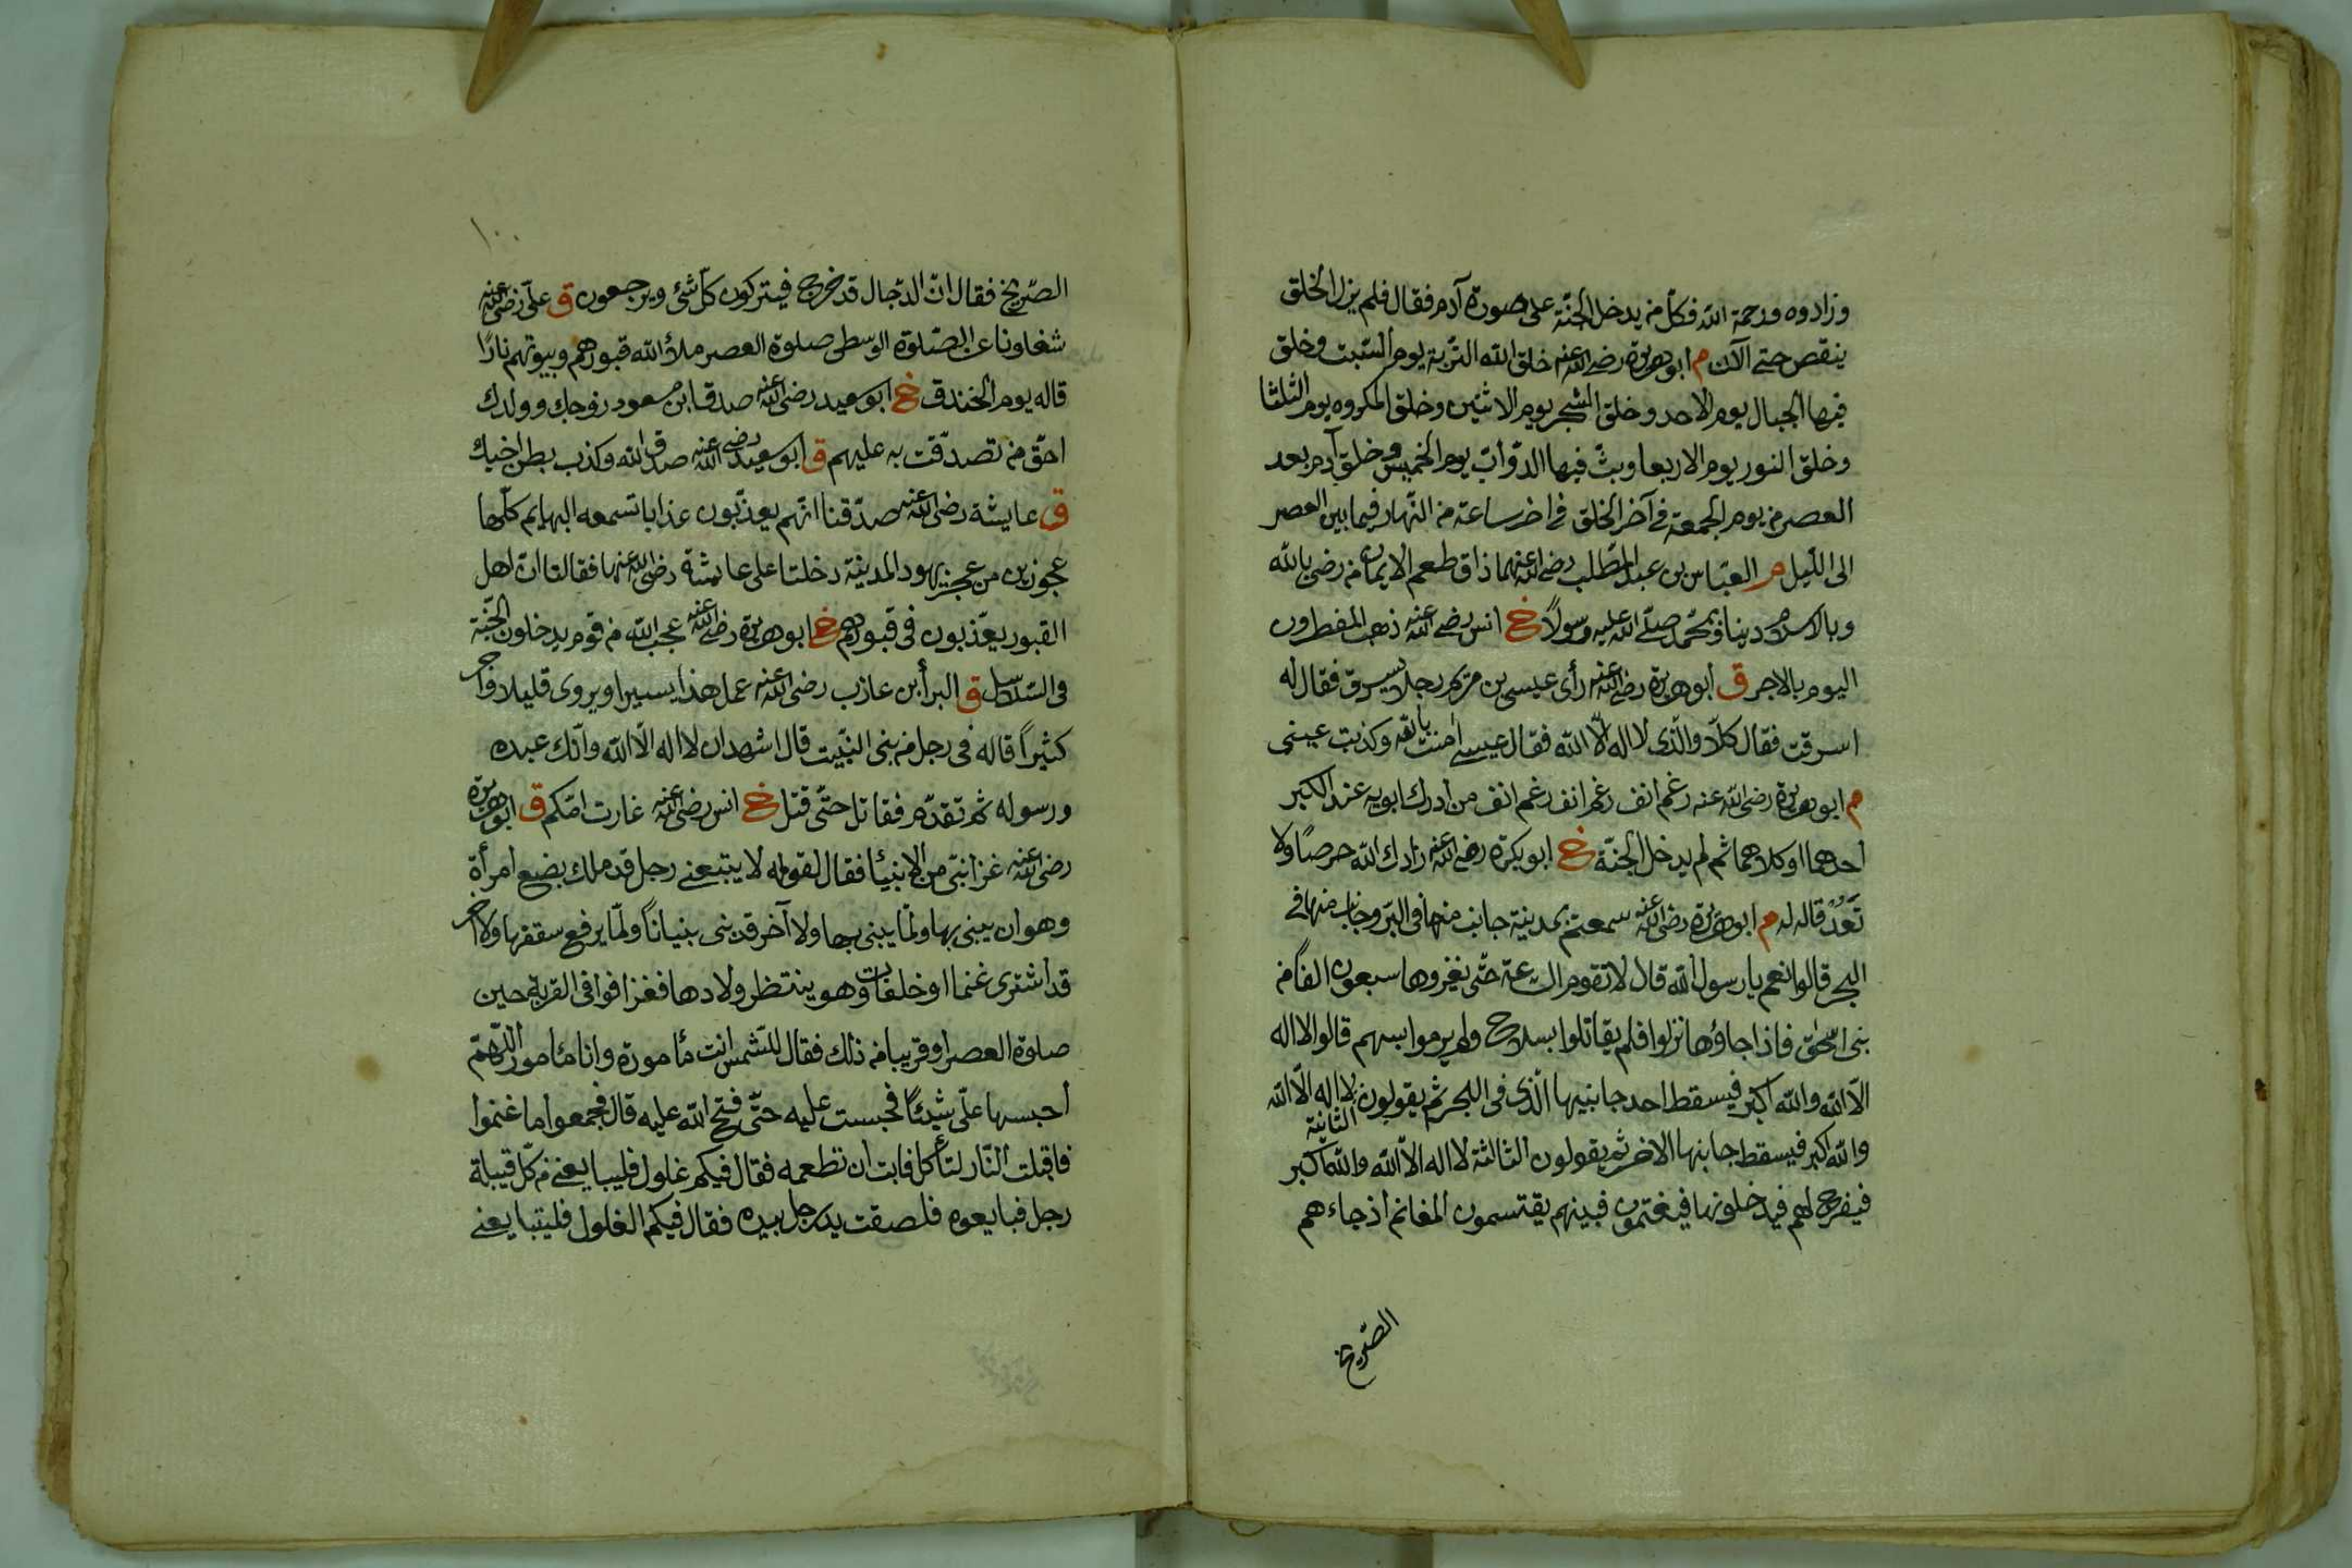 وزادوه ورحمة الله فكل من يدخل الجنة على صورة آدم فقال فلم يزل الخلق
ينقص حتى الآن م ابو هريرة رضى الله عنه خلق الله التربة يوم السبت وخلق
فيها الجبال يوم الاحد وخلق الشجر يوم الاثنين وخلق المكروه يوم الثلثا
وخلق النور يوم الاربعا وبث فيها الدواب يوم الخميس وخلق آدم بعد
العصر من يوم الجمعة فى آخر الخلق فى اخر ساعة من النهار فيما بين العصر
الى الليل م العباس بن عبد المطلب رضى الله عنهما ذاق طعم الايمان من رضى بالله
وبالاسلام دينا وبمحمد صلى الله عليه رسولاً خ انس رضى الله عنه ذهب المفطرون
اليوم بالاجر ق ابو هريرة رضى الله عنه رأى عيسى بن مريم رجلا يسرق فقال له
اسرقت فقال كلا والذى لا اله الا الله فقال عيسى امنت بالله وكذبت عينى
م ابو هريرة رضى الله عنه رغم انف رغم انف رغم انف من ادرك ابويه عند الكبر
احدهما اوكلاهما ثم لم يدخل الجنة خ ابو بكرة رضى الله عنه زادك الله حرصًا ولا
تَعُدْ قاله له م ابو هريرة رضى الله عنه سمعتم بمدينة جانب منها فى البر وجانب منها فى
البحر قالوا نعم يا رسول الله قال لا تقوم الساعة حتى يغزوها سبعون الفا من
بنى اسحق فاذا جاؤها نزلوا فلم يقاتلوا بسلاح ولم يرموا بسهم قالوا لا اله
الا الله والله اكبر فيسقط احد جانبيها الذى فى البحر ثم يقولون الثانية لا اله الا الله
والله اكبر فيسقط جانبها الاخر ثم يقولون الثالثة لا اله الا الله والله اكبر
فيفرج لهم فيدخلونها فيغتمون فبينهم يقتسمون المغانم اذ جاءهم
الصريخ
١٠٠
الصريخ فقال ان الدجال قد خرج فيتركون كل شئ ويرجعون ق على رضى الله عنه
شغلونا عن الصلوة الوسطى صلوة العصر ملأ الله قبورهم وبيوتهم نارًا
قاله يوم الخندق خ ابو سعيد رضى الله عنه صدق ابن مسعود زوجك وولدك
احق من تصدقت به عليهم ق ابو سعيد رضى الله عنه صدق الله وكذب بطن اخيك
ق عايشة رضى الله عنها صدقتا انهم يعذبون عذابا تسمعه البهايم كلها
عجوزين من عجز يهود المدينة دخلتا على عايشة رضى الله عنها فقالتا ان اهل
القبور يعذبون فى قبورهم خ ابو هريرة رضى الله عنه عجب الله من قوم يدخلون الجنة
فى السلاسل ق البرأ بن عازب رضى الله عنه عمل هذا يسيرا ويروى قليلا واجر
كثيراً قاله فى رجل من بنى النبيت قال اشهد ان لا اله الا الله وانك عبده
ورسوله ثم تقدم فقاتل حتى قتل خ انس رضى الله عنه غارت امكم ق ابو هريرة
رضى الله عنه غزا نبى من الانبيا فقال لقومه لا يتبعنى رجل قد ملك بضع امرأة
وهو ان يبنى بها ولما يبنى بها ولا آخر قد بنى بنياناً ولما يرفع سقفها ولا اخر
قد اشترى غنما او خلفات وهو ينتظر ولادها فغزا فوافى القرية حين
صلوة العصر او قريبا من ذلك فقال للشمس انت مأمورة وانا مأمور اللهم
احبسها على شيئاً فحبست عليه حتى فتح الله عليه قال فجمعوا ما غنموا
فاقبلت النار لتأكل فابت ان تطعمه فقال فيكم غلول فليبايعنى من كل قبيلة
رجل فبايعوه فلصقت يد رجل بيده فقال فيكم الغلول فليتبايعنى